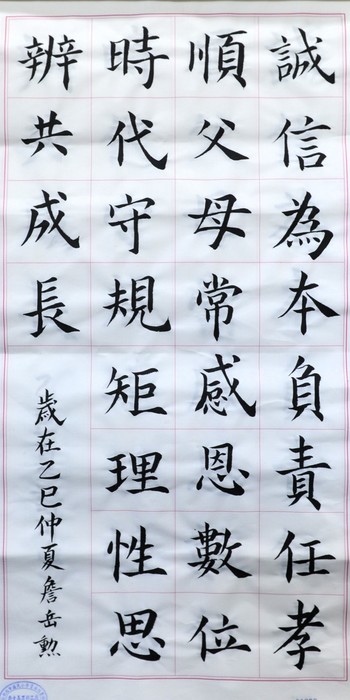 誠信為本負責任孝
順父母常感恩數位
時代守規矩理性思
辨共成長
歲在乙巳仲夏詹岳勲